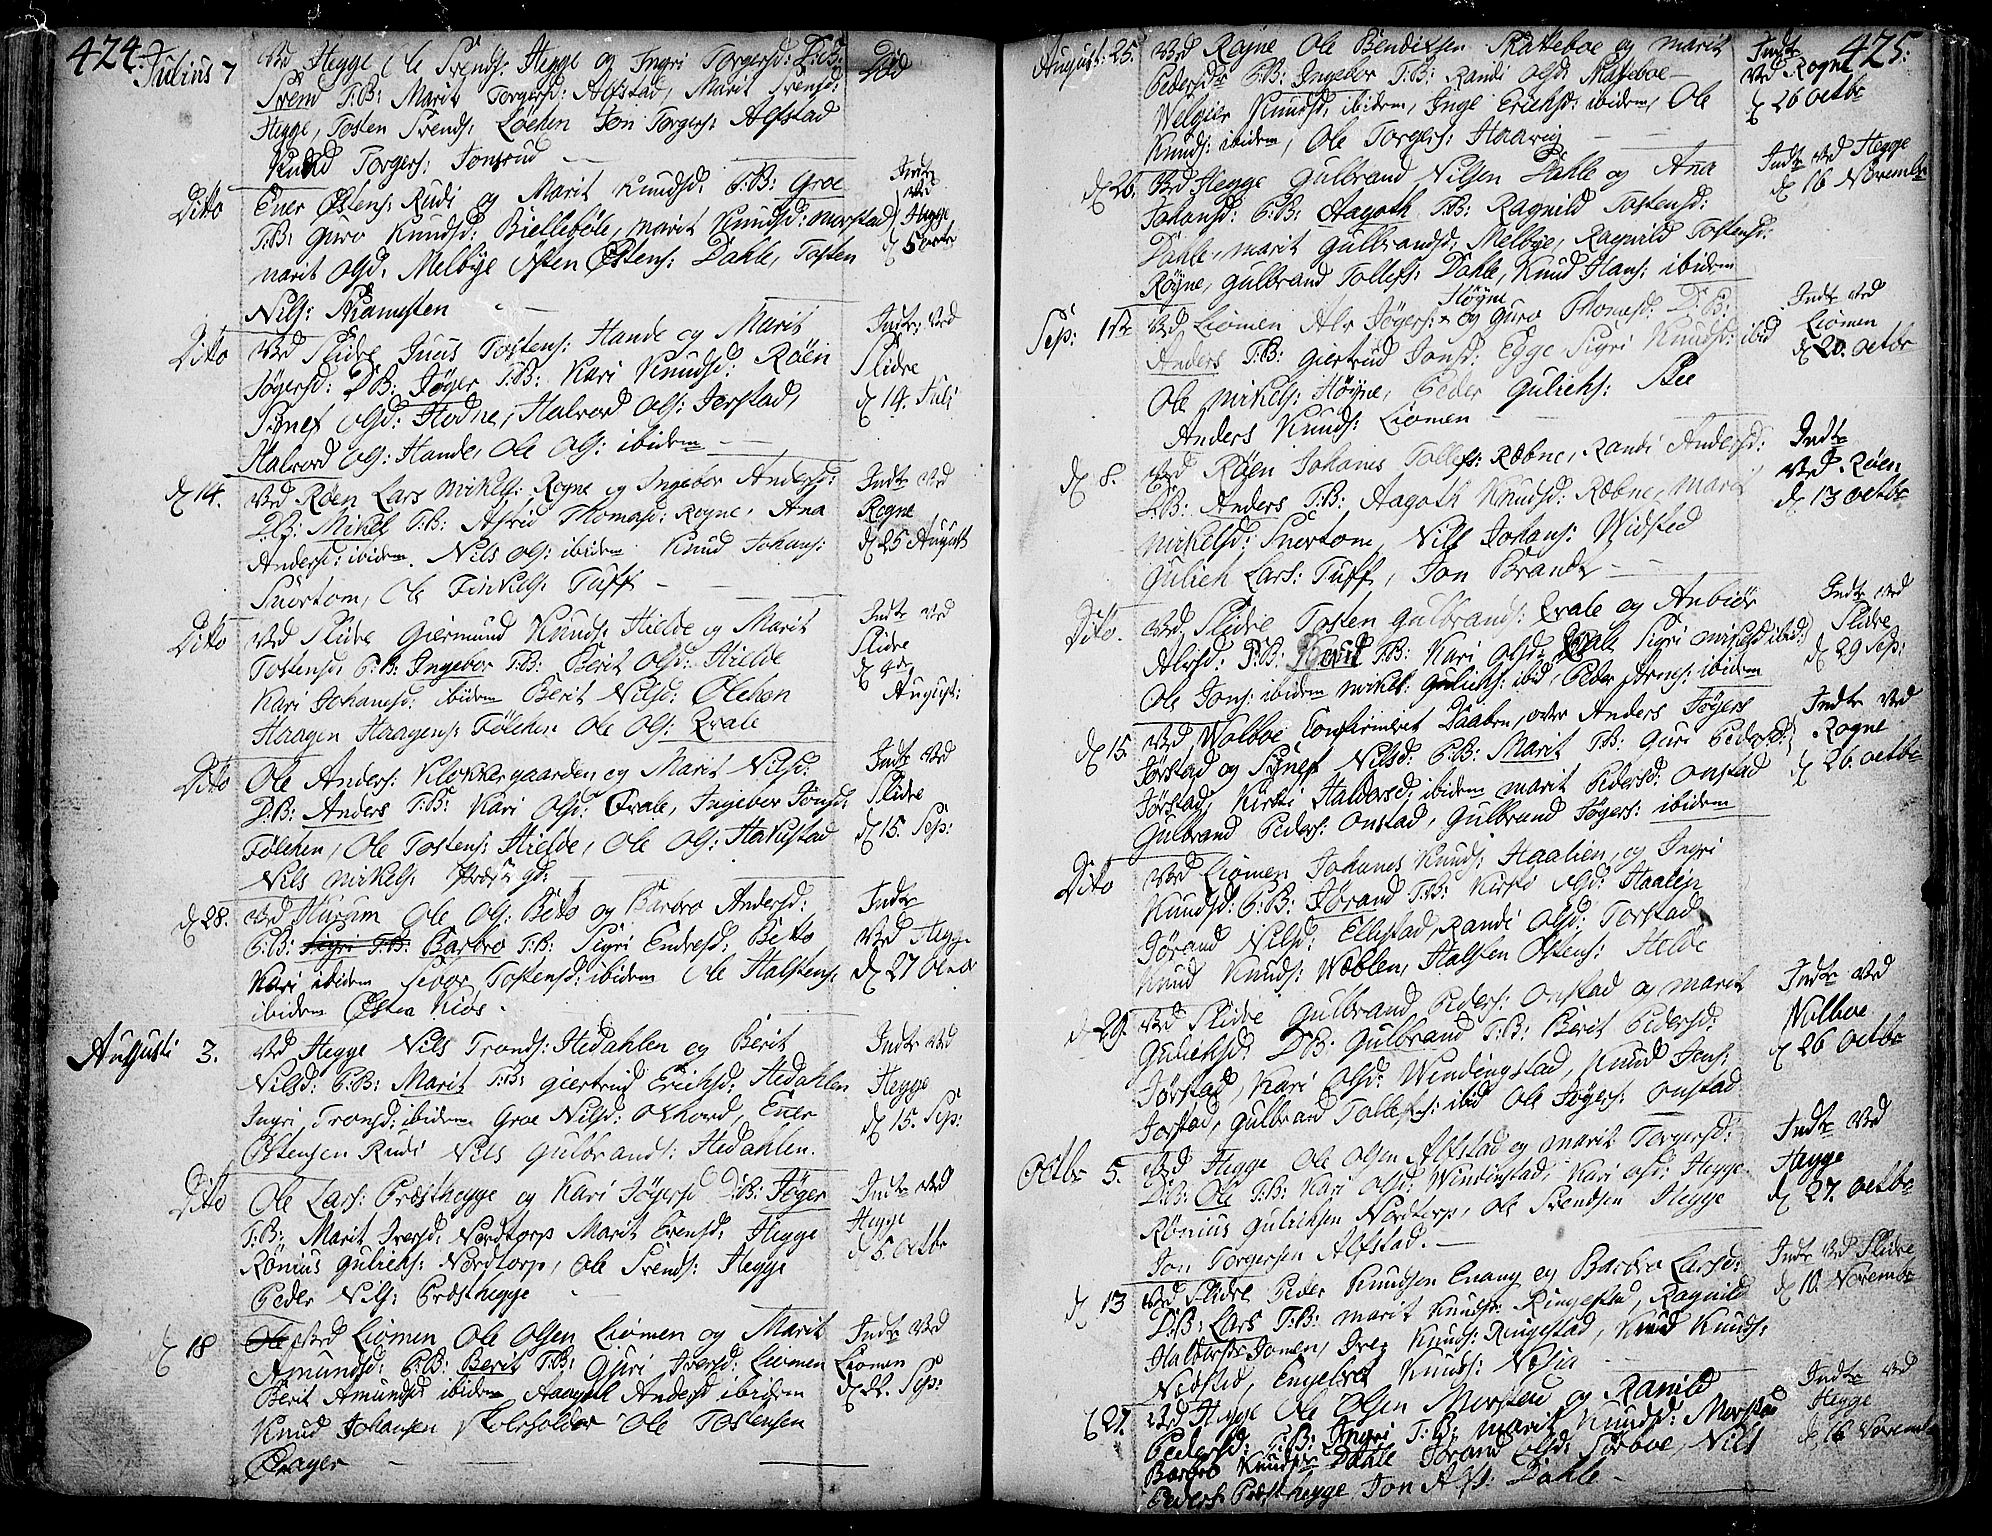 424.
Julius 7
Ved Hegge Ole Svends: Hegge og Ingri Torgersd: D:B:
Svend T:B: Marit Torgersd: Alfstad, Marit Svensd:
Hegge, Tosten Svends: Løchen Jon Torgers: Alfstad
Knud Torgers: Jonsrud
Død
Ditto
Ener Østens: Rudi og Marit Knudsd: P:B: Groe
T:B: Guro Knudsd: Biellebøle, Marit Knudsd: Morstad
Marit Olsd: Melbye Østen Østens: Dahle, Tosten
Nils:
Indtr
Ved
Hegge
d 5 octbr
Ditto
Ved Slidre Juus Tostens: Hande og Marit
Jøgersd: D:B: Jøger T:B: Kari Knudsd: Røen
Synef Olsd: Hodne, Halvord Ols: Jorstad,
Halvord Ols: Hande, Ole Ols: ibidem
Indtr: Ved
Slidre
d 14. Juli
d 14.
Ved Røen Lars Mirkels: Rogne og Ingebor Andersd:
D:B: Mirkel T:B: Astrid Thomasd: Rogne, Ana
Andersd: ibidem. Nils Ols: ibidem Knud Johans:
Snortom, Ole Finkels: Tuff
Indtr Ved
Rogne
d 25 August
Ditto
Ved Slidre Giermund Knuds: Hielde og Marit
Tostensd: P:B: Ingebor T:B: Berit Olsd: Hielde
Kari Johansd: ibidem Berit Nilsd: Olehen
Haagen Haagens: Følehen Ole Ols: Qvale
Indtr ved
Slidre
August:
Ditto
Ole Anders: Klokkergaarden og Marit Nilsd:
D:B: Anders T:B: Kari Olsd: Qvale, Ingebor Jonsd:
Følehen, Ole Tostens: Hielde, Ole Ols: Hakestad
Nils Mirkels: Præstegd:
Indtr Ved
Slidre
d 15. Sep:
d 28.
Ved Hurum Ole Ols: Beito og Barbro Andersd:
P:B: Sigri T:B: Barbro T:B: Sigri Endresd: Beito
Kari ibidem Sivor Tostensd: ibidem Ole Halstens:
ibidem Østen Kios
Indtr
Ved Hegge
d 27 Octbr
Augusti 3.
Ved Hegge Nils Tronds: Hedahlen og Berit
Nilsd: P:B: Marit T:B: Giertrud Erichsd: Hedahlen
Ingri Tronsd: ibidem Groe Nilsd: Okhord, Ener
Østensen Rudi Nils Gulbrands: Hedahlen.
Indtr Ved
Hegge
d 15. Sep:
Ditto
Ole Lars: Præsthegge og Kari Jøgersd D:B: Jøger
T:B: Marit Iversd: Nordtorp Marit Svensd: Hegge
Rønius Gulichs: Nordtorp, Ole Svends: Hegge
Peder Nils: Præsthegge
Indtr Ved
Hegge
d 5. Octbr
d 18
Ole Ved Liomen Ole Olsen Liomen og Marit
Amundsd: P:B: Berit T:B: Guri Iversd: Liomen
Berit Amundsd ibidem Aagoth Andersd ibidem
Knud Johansen Skoleholder Ole Tostensen
Indtr Ved
Liomen
d 22. Sep:
425.
August: 25.
Ved Rogne Ole Bendixsen Skatteboe og Marit
Pedersdr P:B: Ingebor T:B: Randi Olsd: Skatteboe
Welgier Knudsd: ibidem, Inge Erichsd: ibidem, Ole
Knuds: ibidem, Ole Torgers: Haavig
Indtr
Ved Rogne
d 26 octbr
d 26.
Ved Hegge Gulbrand Nilsen Dahle og Ana
Johansd: P:B: Aagoth T:B: Ragnild Tostensd:
Dahle, Marit Gulbrandsd: Melbye, Ragnild Tostensd:
Røyne, Gulbrand Tollefs: Dahle, Knud Hans: ibidem
Indtr ved Hegge
d 16 Novembr
Sep: 1ste
Ved Liomen Alv Jøgers: Høyne og Guro Thomasd: D:B:
Anders T:B: Giertrud Jonsd: Egge Sigri Knudsd: ibid
Ole Mirkels: Høyne, Peder Gulichs:
Anders Knuds: Liomen
Indtr Ved
Liomen
d 20. octbr
d 8.
Ved Røen Johanes Tollefs: Ræbne, Randi Andersd:
D:B: Anders T:B: Aagoth Knudsd: Ræbne, Marit
Mirkelsd: Snortom, Nils Johans: Widsted
Gulich Lars: Tuff, Jon Brandt
Indtr
Ved Røen
d 13 octbr
Ditto.
Ved Slidre Tosten Gulbrands: Qvale og Anbiør
Alvsd: D:B: Knud T:B: Kari Olsd: Qvale Sigri Mirkelsd ibid:
Ole Jons: ibidem Mirkel: Gulichs: ibid, Peder Arens: ibidem
Indtr ved
Slidre
d 29 Sep:
d 15.
Ved Wolboe Confirmeret Daaben, over Anders Jøgers
Jørstad og Synef Nilsd: P:B: Marit T:B: Guri Pedersd:
Jørstad, Kirsti Haldorsd: ibidem Marit Pedersd: Onstad
Gulbrand Peders: Onstad, Gulbrand Jøgers: ibidem
Indtr Ved
Rogne
d 26. octbr
Ditto
Ved Liomen Johanes Knuds: Haalien, og Ingri
Knudsd: P:B: Jørand T:B: Kirsti Olsd: Haalien
Jørand Nilsd: Ellestad, Randi Olsd: Torstad
Knud Knuds: Wæblen, Halsten Ostens: Helde
d 29.
Ved Slidre Gulbrand Peders: Onstad og Marit
Gulichsd: D:B: Gulbrand T:B: Berit Pedersd:
Jørstad, Kari Olsd: Windingstad, Knud Jens:
Jorstad, Gulbrand Tollefs: ibid Ole Jøgers: Onstad
Indtr Ved
Wolboe
d 26 octbr
Octbr 5.
Ved Hegge Ole Olsen Alfstad og Marit Torgersd:
D:B: Ole T:B: Kari Olsd: Windinstad, Kari Olsd: Hegge
Rønius Gulichsen Nordtorp, Ole Svendsen Hegge
Jon Torgersen Alfstad.
Indtr Ved
Hegge
d 27. octbr
d 13
Ved Slidre Peder Knudsen Enang og Barbro Larsd:
D:B: Lars T:B: Marit Knudsdr: Ringestad, Ragnild
Haldorsdr Jomen, Iver Knuds: Ringestad, Knud Knuds:
Nædsted, Engebret Knuds: Næsia
Indtr Ved Slidre
d 10 Novembr
d 27.
Ved Hegge Ole Olsen Morstad og Ranild
Pedersd: P:B: Ingri T:B: Marit Knudsd: Morstad
Barbro Knudsdr Dahle Jorand Olsd: Sorboe, Nils
Peders: Præsthegge Jon Alfs: Dahle
Indtr ved
Hegge
d 16 Novembr